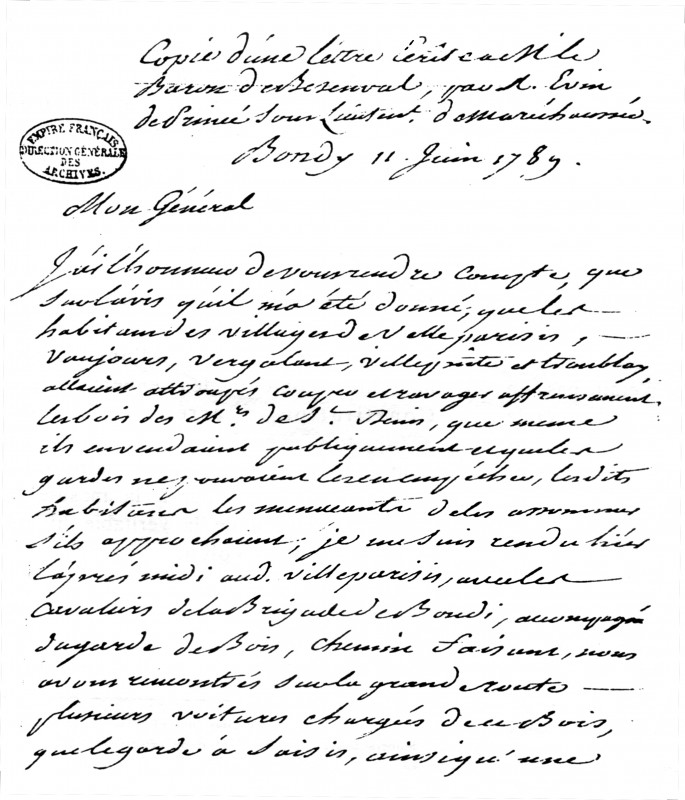 Copie d'une lettre Ecrite a M. le
Baron de Besenval, par M. Evin
de Princé Sous Lieutent. de Maréchaussée.
Bondy 11 Juin 1789.
EMPIRE FRANÇAIS
DIRECTION GÉNÉRALE
DES
ARCHIVES.
Mon Général
J'ai l'honneur de vous rendre compte, que
sur l'avis qu'il m'a été donné, que les
habitans des villages de Velleparisis, —
Vaujours, vergalant, villepinte et tremblay,
allaient attroupés couper et ravager affreusement
les bois des Mrs. de St. Denis, que meme
ils en vendaient publiquement et que les
gardes ne pouvaient les en empécher, les dits
habitans les menaceants de les assommer
s'ils approchaient; je me suis rendu hier
l'après midi aud. villeparisis, avec les
Cavaliers de la Brigade de Bondi, accompagné
du garde de Bois, chemin faisant, nous
avons rencontrés sur la grande route —
plusieurs voitures chargés de ce Bois,
que le garde à saisis, ainsi qu'une